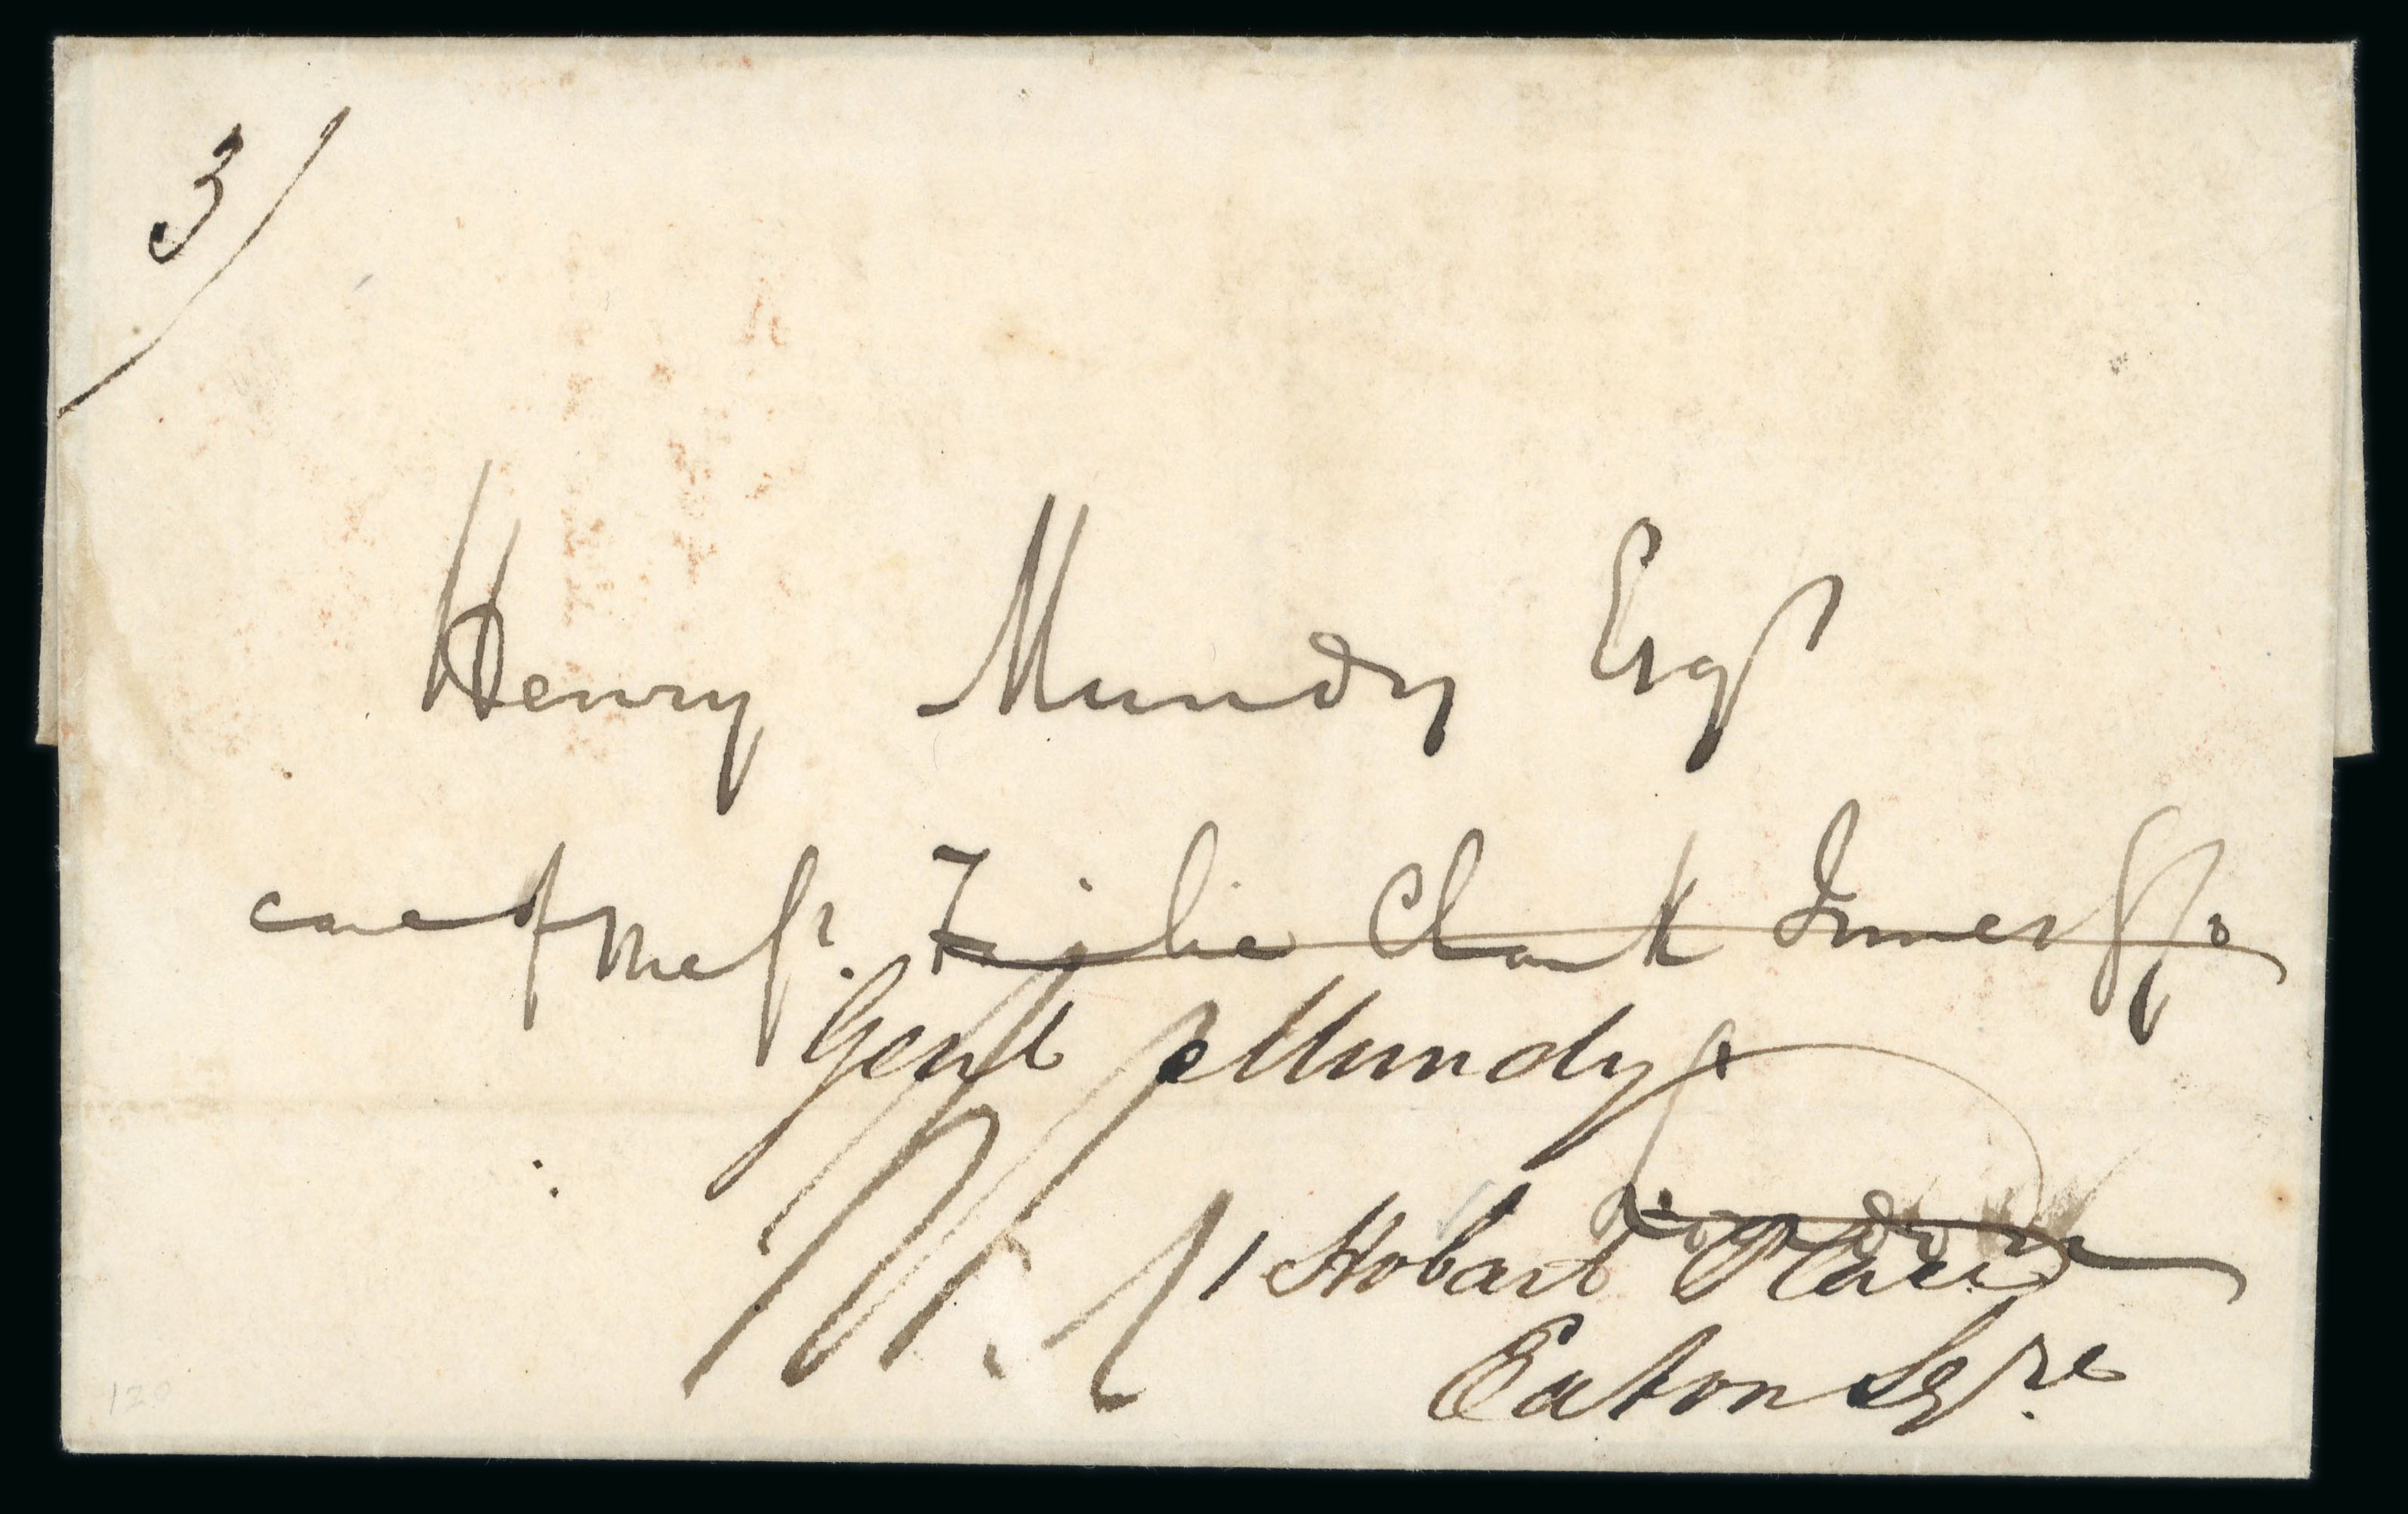 3/
Henry Mundy Esqr
care of Messrs. Fairlie Clark Innes & Co
Genl Mundy
London
1 Hobart Place
Eaton Sqre
120